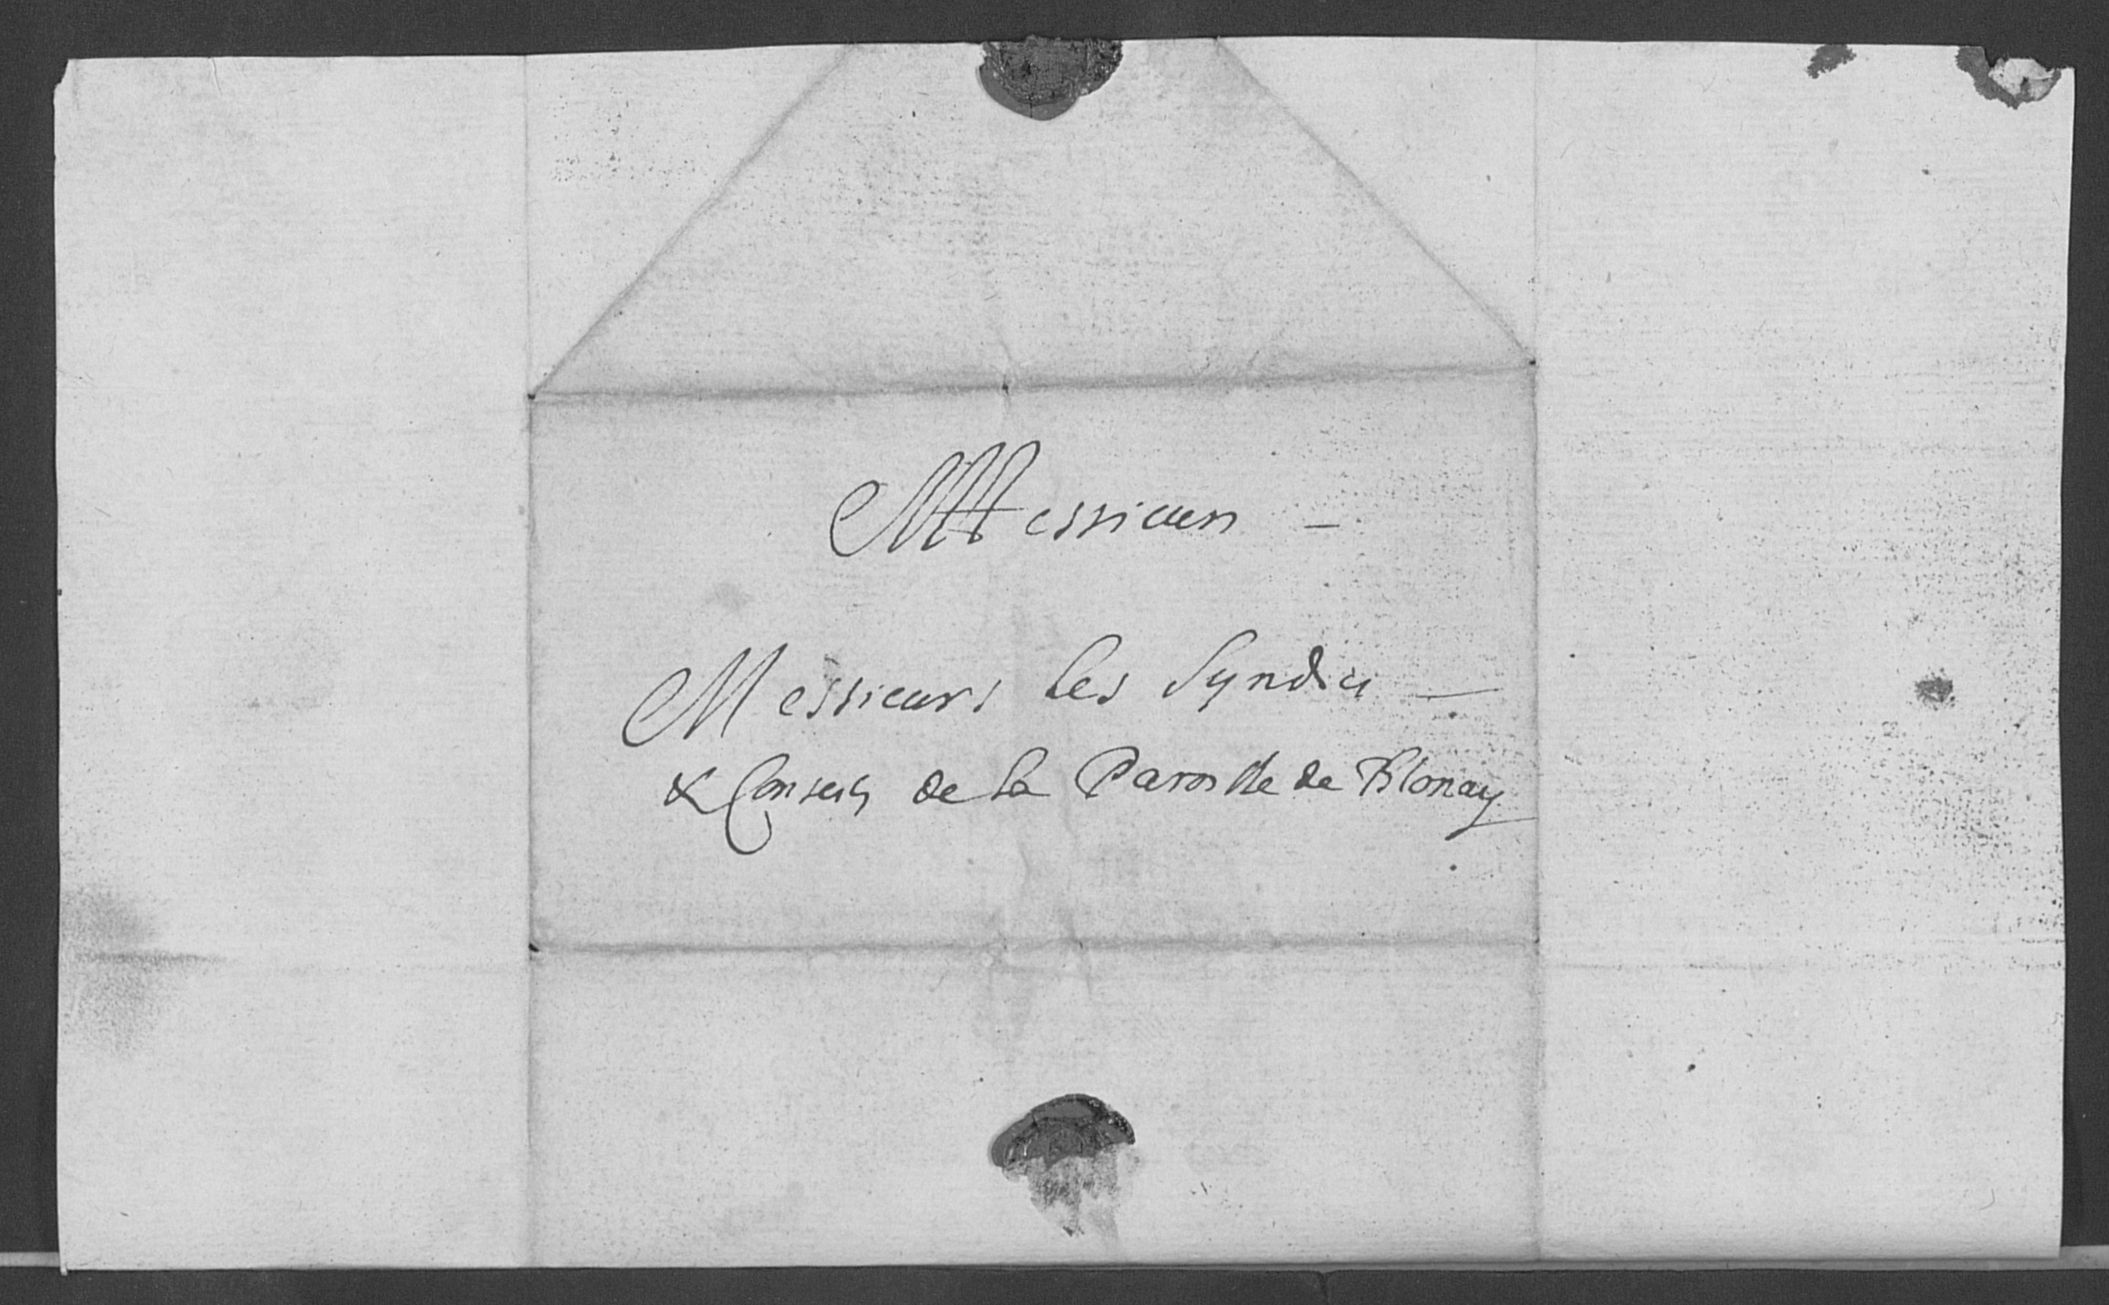 Messieurs –
Messieurs les Syndics –
& Conseils de la Paroisse de Blonay